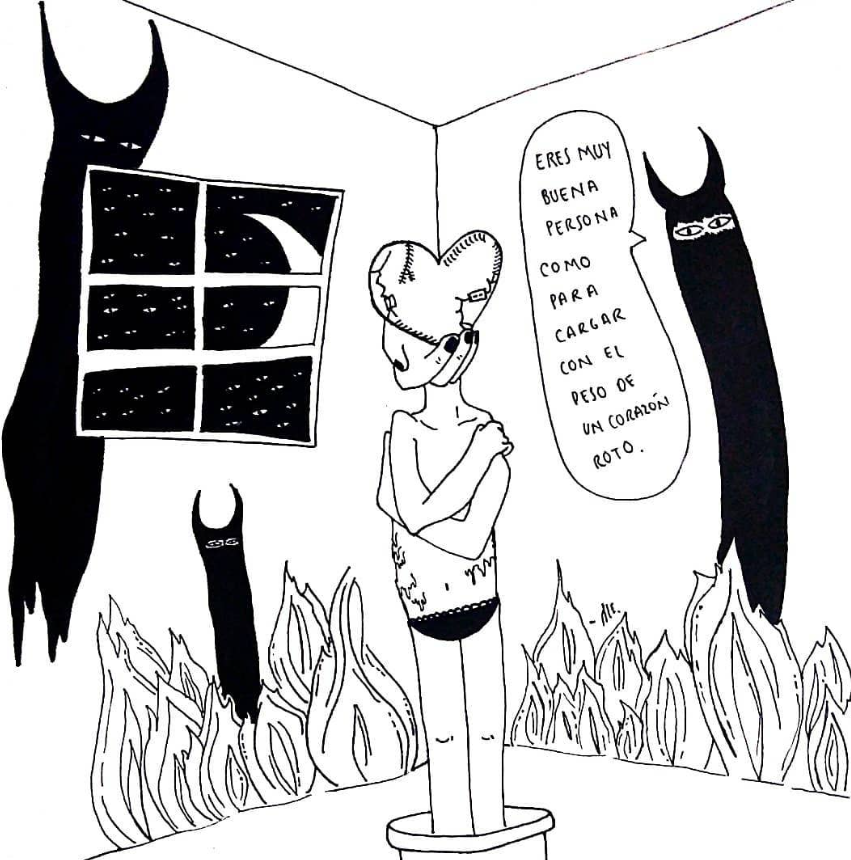 ERES MUY
BUENA
PERSONA
COMO
PARA
CARGAR
CON EL
PESO DE
UN CORAZÓN
ROTO.